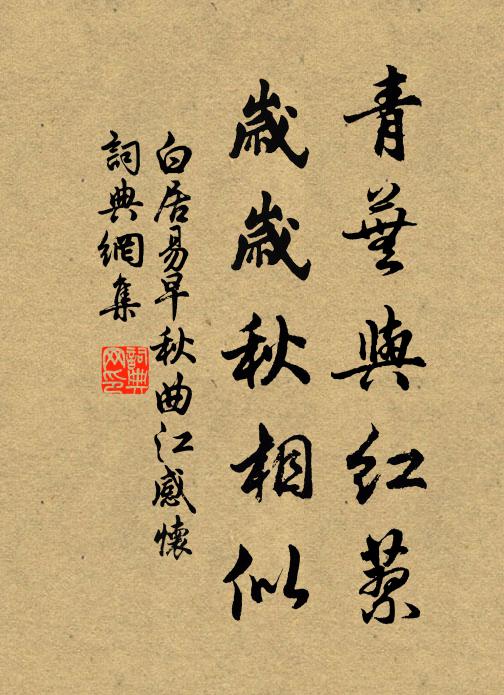 青蕪與紅蓼
歲歲秋相似
白居易早秋曲江感懷
詞典網集
詞典
网印